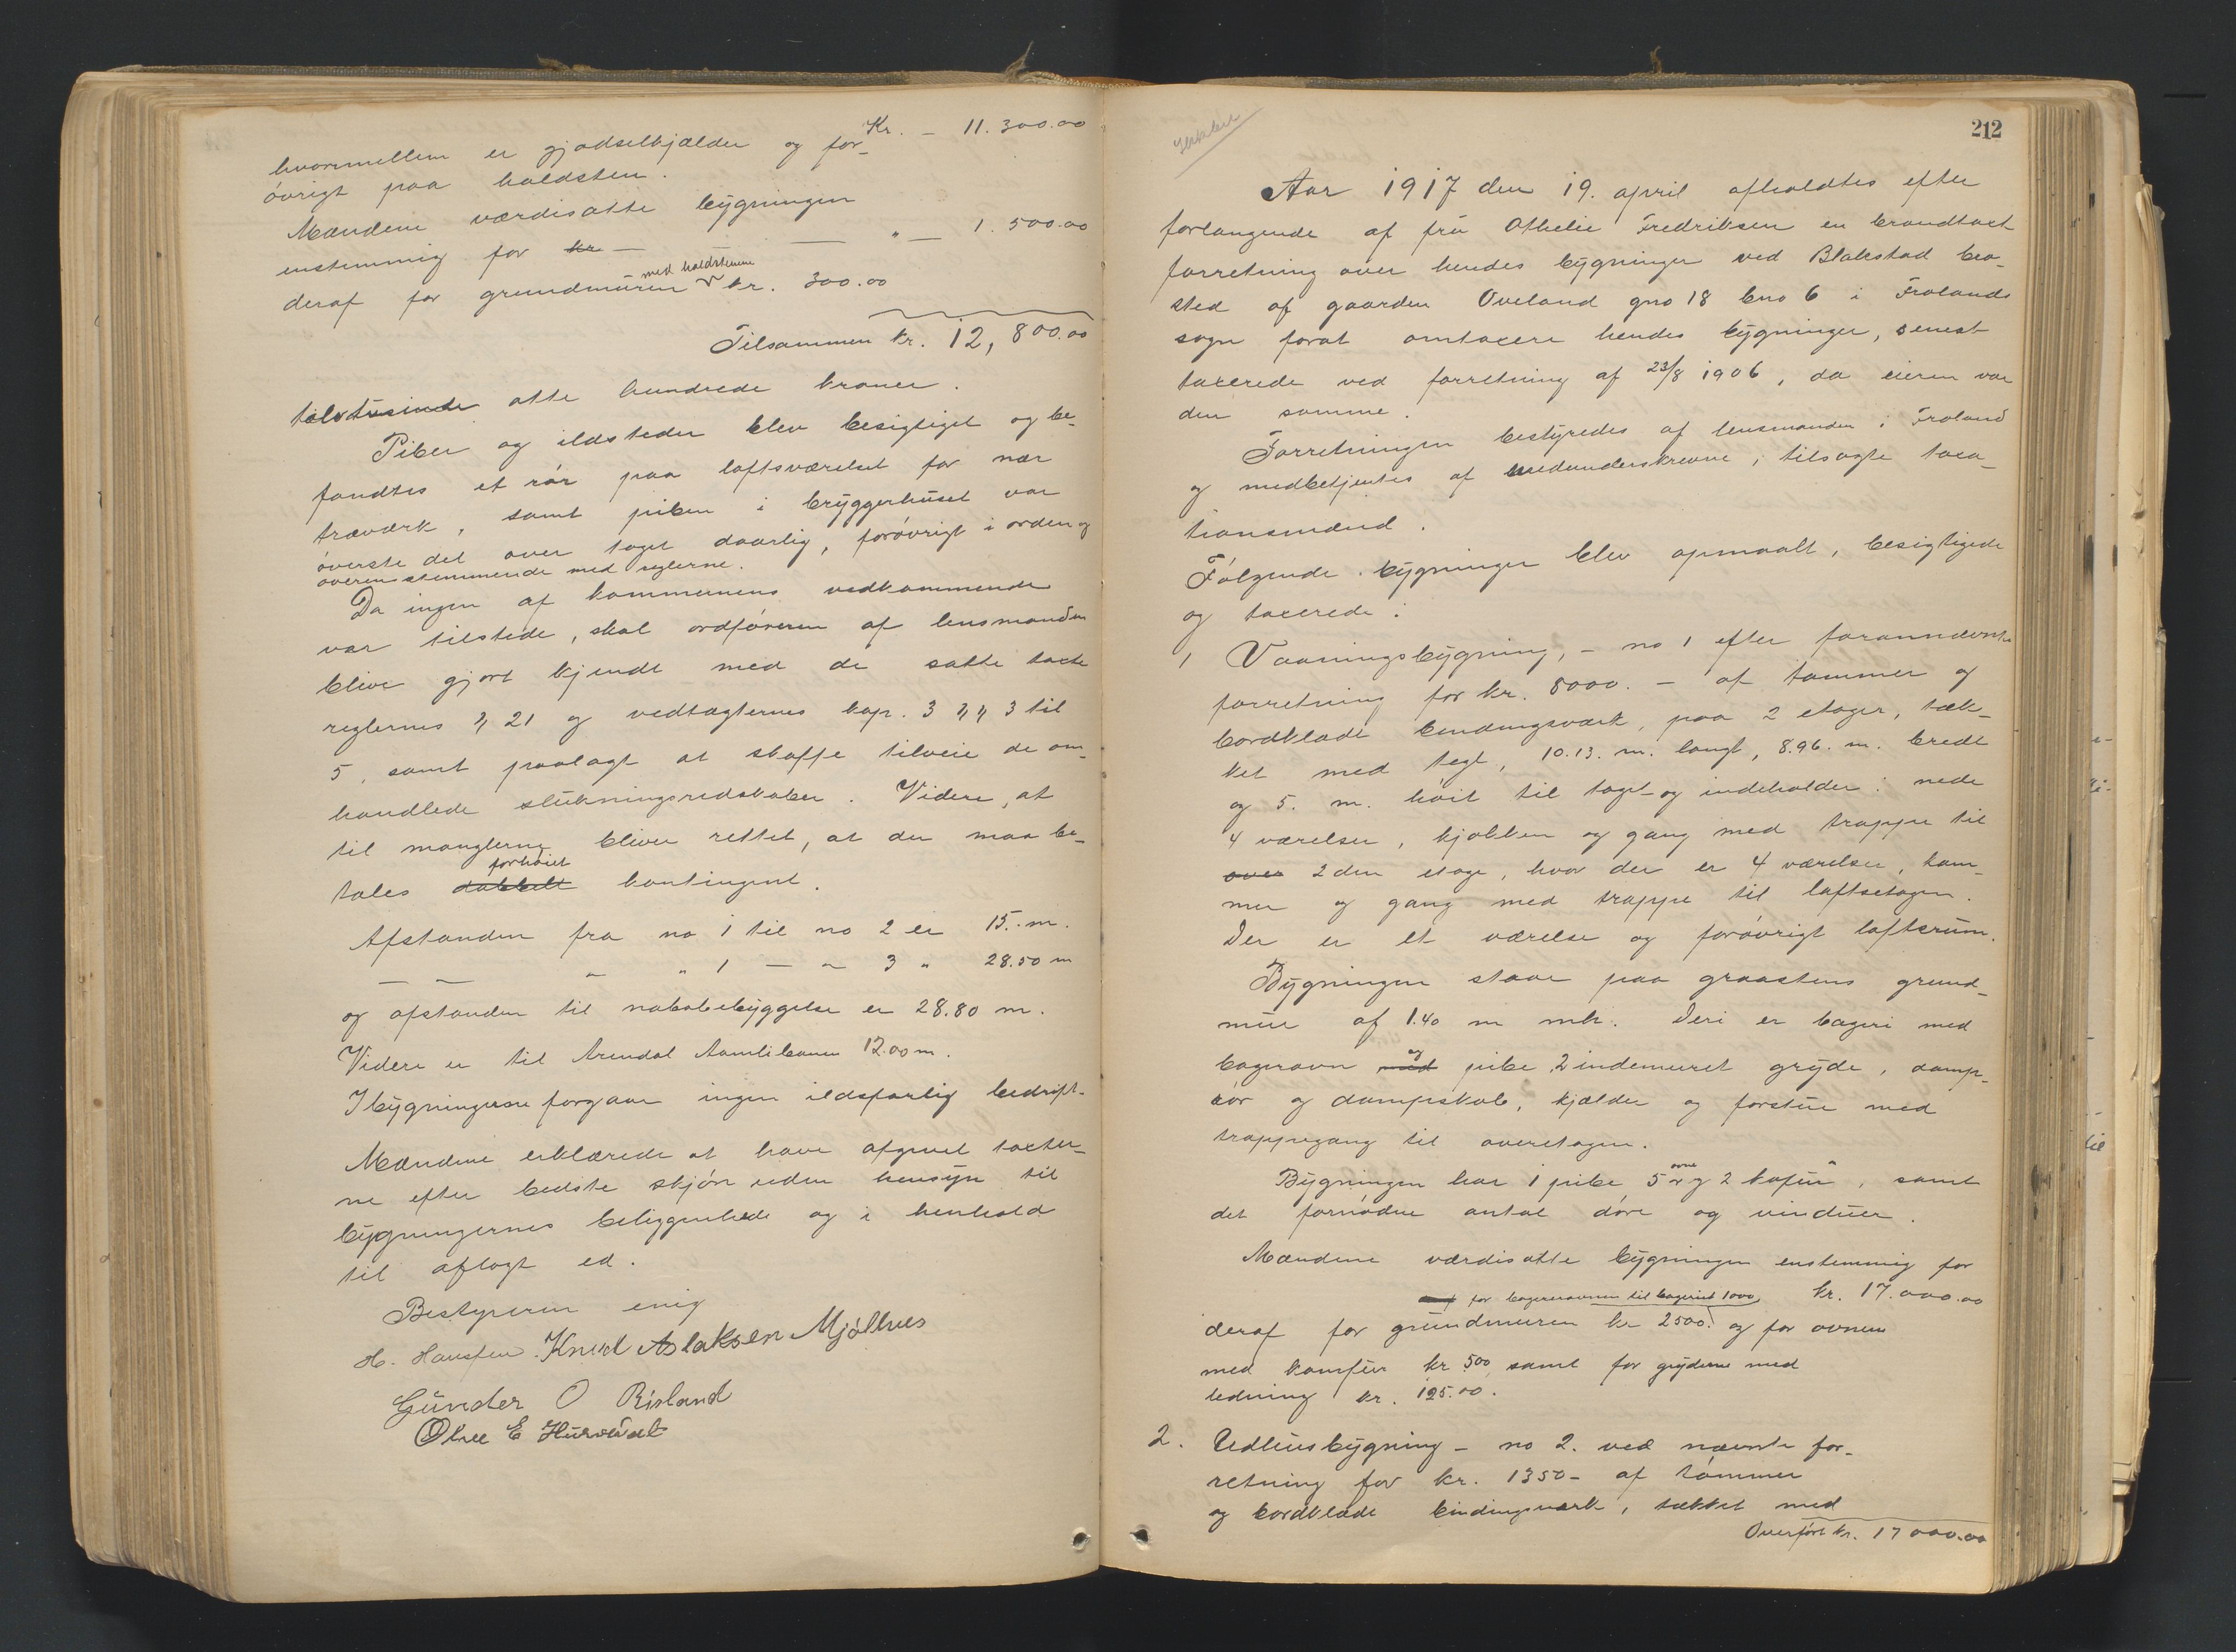 Kr. — 11.300.00
hvorimellem er gjødselkjælder og for-
øvrigt paa holdsten.
Mændene værdisatte bygningen
enstemmig for kr — — — " — 1.500.00
deraf for grundmuren med holdstenene kr. 300.00
Tilsammen kr. 12,800.00
tolvtusinde otte hundrede kroner.
Piber og ildsteder blev besigtiget og be-
fandtes et rør paa loftsværelset for nær
træværk, samt piben i bryggerhuset var
øverste del over taget daarlig, forøvrigt i orden og
overensstemmende med reglerne.
Da ingen af kommunens vedkommende
var tilstede, skal ordføreren af lensmanden
blive gjort kjendt med de satte taxter
reglernes § 21 og vedtægternes kap. 3 §§ 3 til
5, samt paalagt at skaffe tilveie de om-
handlede slukningsredskaber. Videre, at
til manglerne bliver rettet, at der maa be-
tales dobbelt forhøiet kontingent.
Afstanden fra no 1 til no 2 er 15.-m.
— — " " 1 — " 3 " 28.50 m
og afstanden til nabobebyggelse er 28.80 m.
Videre er til Arendal Aamlibanen 12.00 m.
I bygningerne forgaar ingen ildsfarlig bedrift.
Mændene erklærede at have afgivet taxter-
ne efter bedste skjøn uden hensyn til
bygningernes beliggenhed og i henhold
til aflagt ed.
Bestyreren enig
H. Hansen. Knud Aslaksen Mjølhus
Gunder O Risland
Olve E Hurvedal
212
Aar 1917 den 19. april afholdtes efter
forlangende af fru Othelie Fredriksen en brandtaxt
forretning over hendes bygninger ved Blakstad bro-
sted af gaarden Oveland gno 18 bno 6 i Frolands
sogn forat omtaxere hendes bygninger, senest
taxerede ved forretning af 23/8 1906, da eieren var
den samme.
Forretningen bestyredes af lensmanden i Froland
og medbetjentes af medunderskrevne, tilsagte taxa-
tionsmænd.
Følgende bygninger blev opmaalt, besigtigede
og taxerede:
1 Vaaningsbygning, - no 1 efter forannævnte
forretning for kr. 8000. - af tømmer og
bordklædt bindingsværk, paa 2 etager, tæk-
ket med tegl, 10.13. m. langt, 8.96. m. bredt
og 5. m. høit til taget og indeholder: nede
4 værelser, kjøkken og gang med trappe til
over 2den etage, hvor der er 4 værelser, kam-
mer og gang med trappe til loftsetagen.
Der er et værelse og forøvrigt loftsrum.
Bygningen staar paa graastens grund-
mur af 1.40 m mh. Deri er bageri med
bagerovn med og pibe, 2 indemuret gryde, damp-
rør og dampskab, kjælder og forstue med
trappegang til overetagen.
Bygningen har 1 pibe 5 ovne og 2 kafur, samt
det fornødne antal døre og vinduer.
Mændene værdisatte bygningen enstemmig for
for bagerovnen til bageriet 1000 kr. 17.000.00
deraf for grundmuren kr 2500. og for ovnene
med komfur kr 500 samt for gryderne med
ledning kr. 125.00.
2. Udhusbygning - no 2. ved nævnte for-
retning for kr. 1350- af tømmer
og bordklædt bindingsværk, tækket med
Overført kr. 17000.00